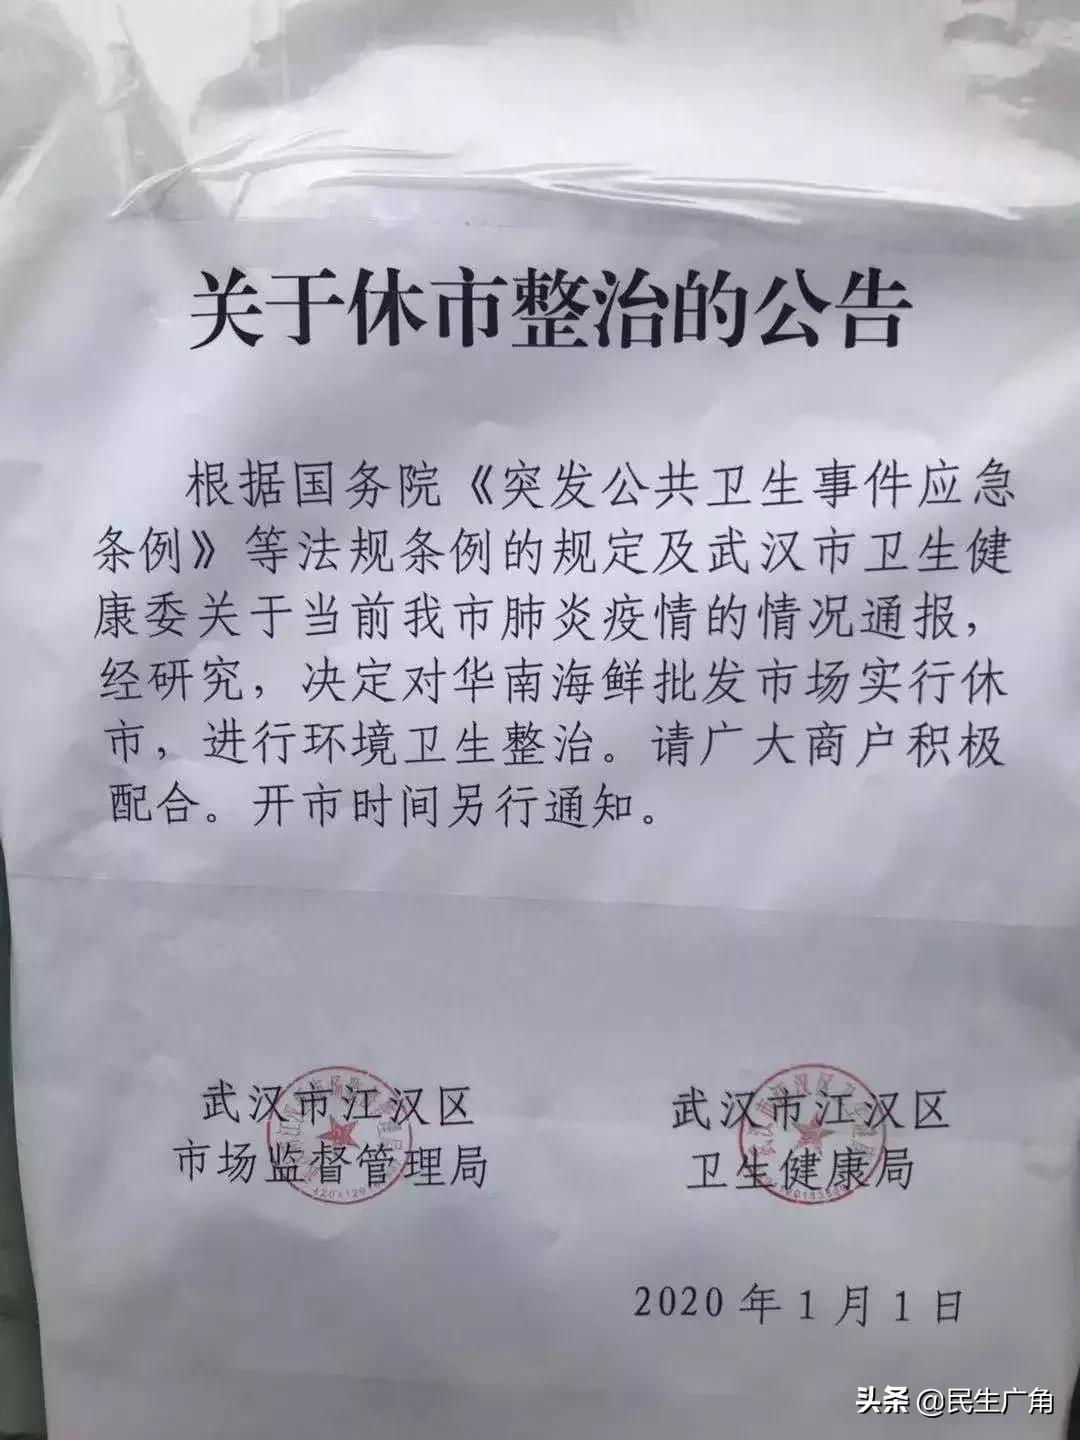 关于休市整治的公告
根据国务院《突发公共卫生事件应急
条例》等法规条例的规定及武汉市卫生健
康委关于当前我市肺炎疫情的情况通报，
经研究，决定对华南海鲜批发市场实行休
市，进行环境卫生整治。请广大商户积极
配合。开市时间另行通知。
武汉市江汉区
市场监督管理局
武汉市江汉区
卫生健康局
2020年1月1日
头条 @民生广角